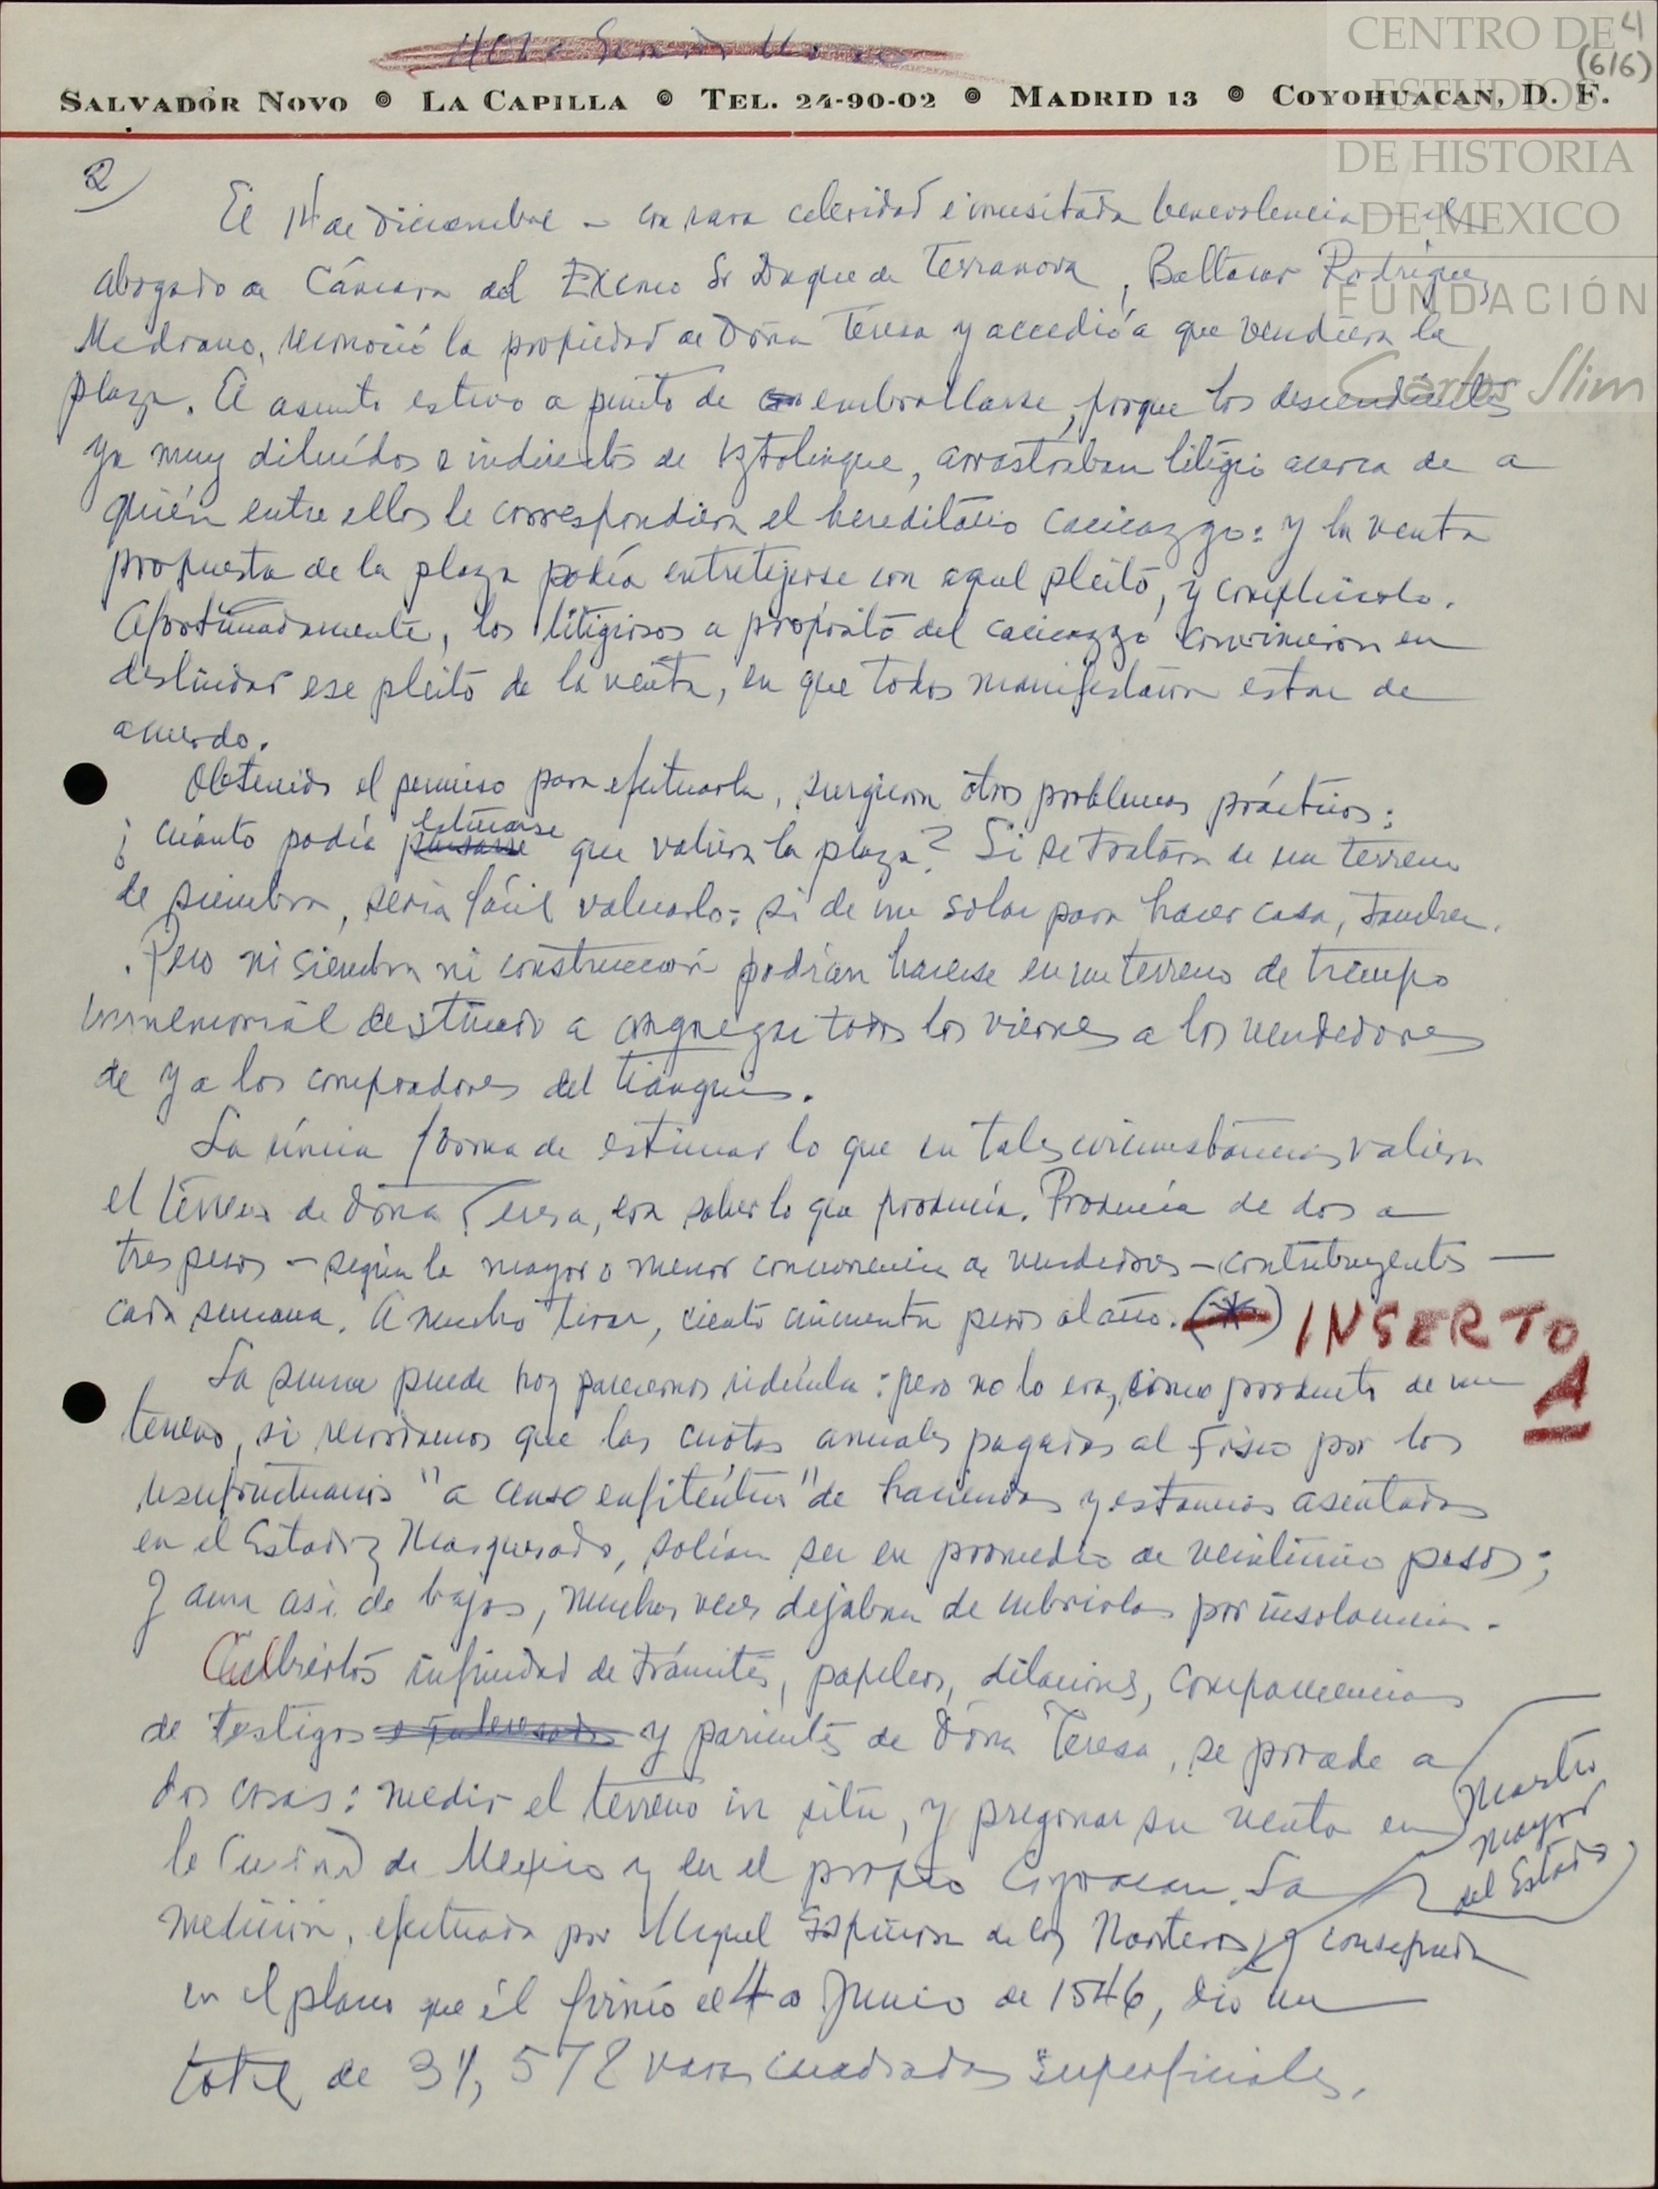 4
(616)
CENTRO DE
ESTUDIOS
DE HISTORIA
DE MEXICO
FUNDACIÓN
Carlos Slim
SALVADOR NOVO ◉ LA CAPILLA ◉ TEL. 24-90-02 ◉ MADRID 13 ◉ COYOHUACAN, D. F.
2)
El 14 de diciembre — con rara celeridad e inusitada benevolencia — el
abogado de Cámara del Excmo Sr Duque de Terranova, Baltasar Rodríguez
Medrano, reconoció la propiedad de Doña Teresa y accedió a que vendiera la
plaza. El asunto estuvo a punto de embrollarse, porque los descendientes
ya muy diluídos e indirectos de Iztolinque, arrostraban litigio acerca de a
quién entre ellos le correspondiera el hereditario cacicazgo: y la venta
propuesta de la plaza podía entretejerse con aquel pleito, y complicarlo.
Afortunadamente, los litigiosos a propósito del cacicazgo convinieron en
deslindar ese pleito de la venta, en que todos manifestaron estar de
acuerdo.
Obtenido el permiso para efectuarla, surgieron otros problemas prácticos:
¿cuánto podía pensarse estimarse que valiera la plaza? Si se tratara de un terreno
de siembra, sería fácil valuarlo: si de un solar para hacer casa, también.
Pero ni siembra ni construcción podrían hacerse en un terreno de tiempo
inmemorial destinado a congregar todos los viernes a los vendedores
de y a los compradores del tianguis.
La única forma de estimar lo que en tales circunstancias valiera
el terreno de Doña Teresa, era saber lo que producía. Producía de dos a
tres pesos — según la mayor o menor concurrencia de vendedores — contribuyentes —
cada semana. A mucho tirar, ciento cincuenta pesos al año. (*) INSERTO
A
La suma puede hoy parecernos ridícula: pero no lo era, como producto de un
terreno, si recordamos que las cuotas anuales pagadas al Fisco por los
usufructuarios "a censo enfitéutico" de haciendas y estancias asentadas
en el Estado y Marquesado, solían ser en promedio de veinticinco pesos;
y aun así de bajas, muchas veces dejaban de cubrirlas por insolvencia.
Cubiertos infinidad de trámites, papeleos, dilaciones, comparecencias
de testigos o interesados y parientes de Doña Teresa, se procede a
dos cosas: medir el terreno in situ, y pregonar su venta en
la Ciudad de Mexico y en el propio Coyoacan. La
medición, efectuada por Miguel Espinosa de los Monteros, y consignada
Maestro
Mayor
del Estado,
en el plano que él firmó el 4 de Junio de 1546, dió un
total de 31,572 varas cuadradas superficiales.